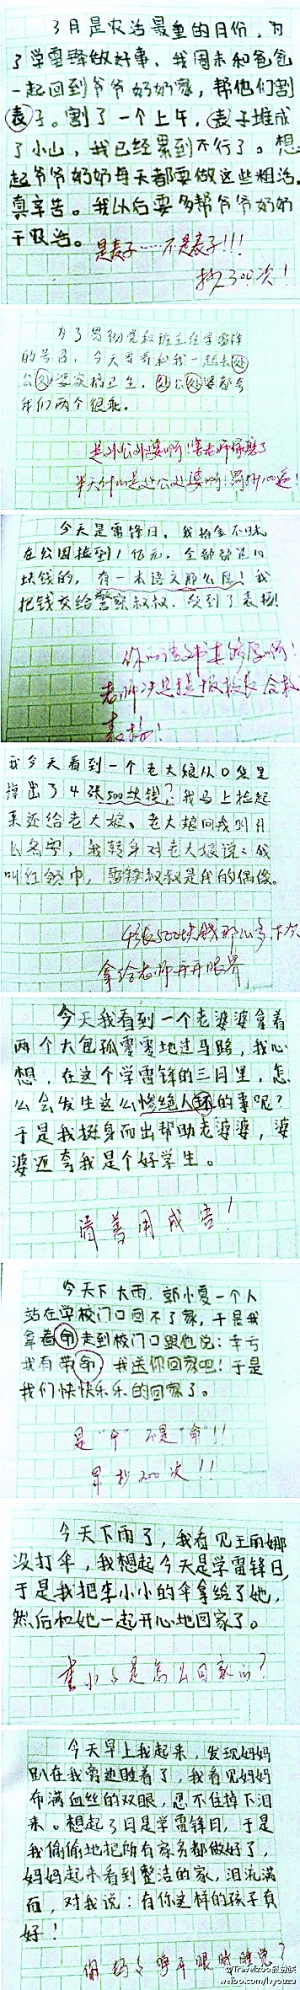 3月是农活最重的日份，为
了学雷锋做好事，我周末和爸爸
一起回到爷爷奶奶家，帮他们割
表子。割了一个上午，表子堆成
了小山，我已经累到不行了。想
起爷爷奶奶每天都要做这些粗活，
真辛苦。我以后要多帮爷爷奶奶
干农活。
是麦子……不是表子!!!
抄300次!
为了
学雷锋
的号召，今天哥哥和我一起去处
公处婆家搞卫生，处公处婆都夸
我们两个很乖。
是外公外婆啊!害老师
半天 是处公处婆啊!罚抄100遍!
今天是雷锋日，我拾金不昧
在公园捡到1亿元，全部都是10
块钱的，有一本语文那么厚!我
把钱交给警察叔叔，受到了表扬!
你的语文书真够厚啊!
老师决定提报校长
表扬!
我今天看到一个老大娘从口袋里
掉出了4张500块钱?我马上捡起
来还给老大娘。老大娘问我叫什
么名字，我转身对老大娘说：我
叫红领巾，雷锋叔叔是我的偶像。
4张500块钱那么多，下次
拿给老师开开眼界
今天我看到一个老婆婆拿着
两个大包孤零零地过马路，我心
想，在这个学雷锋的三月里，怎
么会发生这么惨绝人环的事呢?
于是我挺身而出帮助老婆婆，婆
婆还夸我是个好学生。
请善用成语!
今天下大雨，郭小夏一个人
站在学校门口回不了家，于是我
拿着命走到校门口跟他说：幸亏
我有带命，我送你回家吧!于是
我们快快乐乐的回家了。
是“伞”不是“命”!!
罚抄200次!!
今天下雨了，我看见王雨娜
没打伞，我想起今天是学雷锋日，
于是我把李小小的伞拿给了她，
然后和她一起开心地回家了。
李小小是怎么回家的?
今天早上我起来，发现妈妈
趴在我旁边睡着了，我看见妈妈
布满血丝的双眼，忍不住掉下泪
来。想起3日是学雷锋日，于是
我偷偷地把所有家务都做好了，
妈妈起来看到整洁的家，泪流满
面，对我说：有你这样的孩子真
好!
你妈妈睁开眼睛睡觉?
weibo.com/lvyouzu